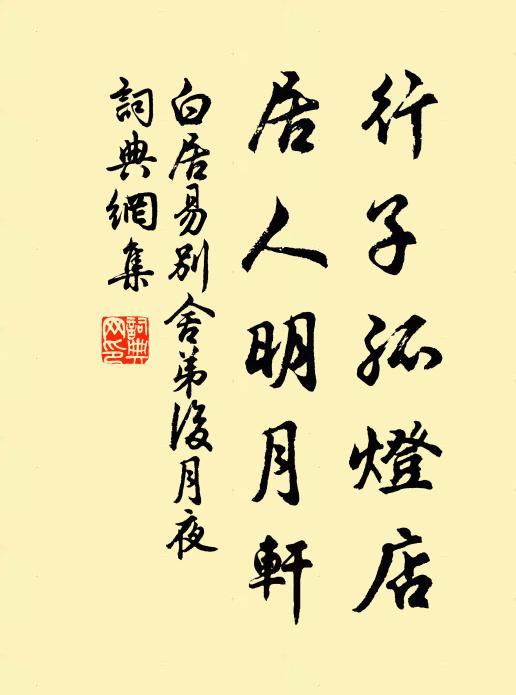 行子孤燈店
居人明月軒
白居易別舍弟後月夜
詞典網集
詞典网印